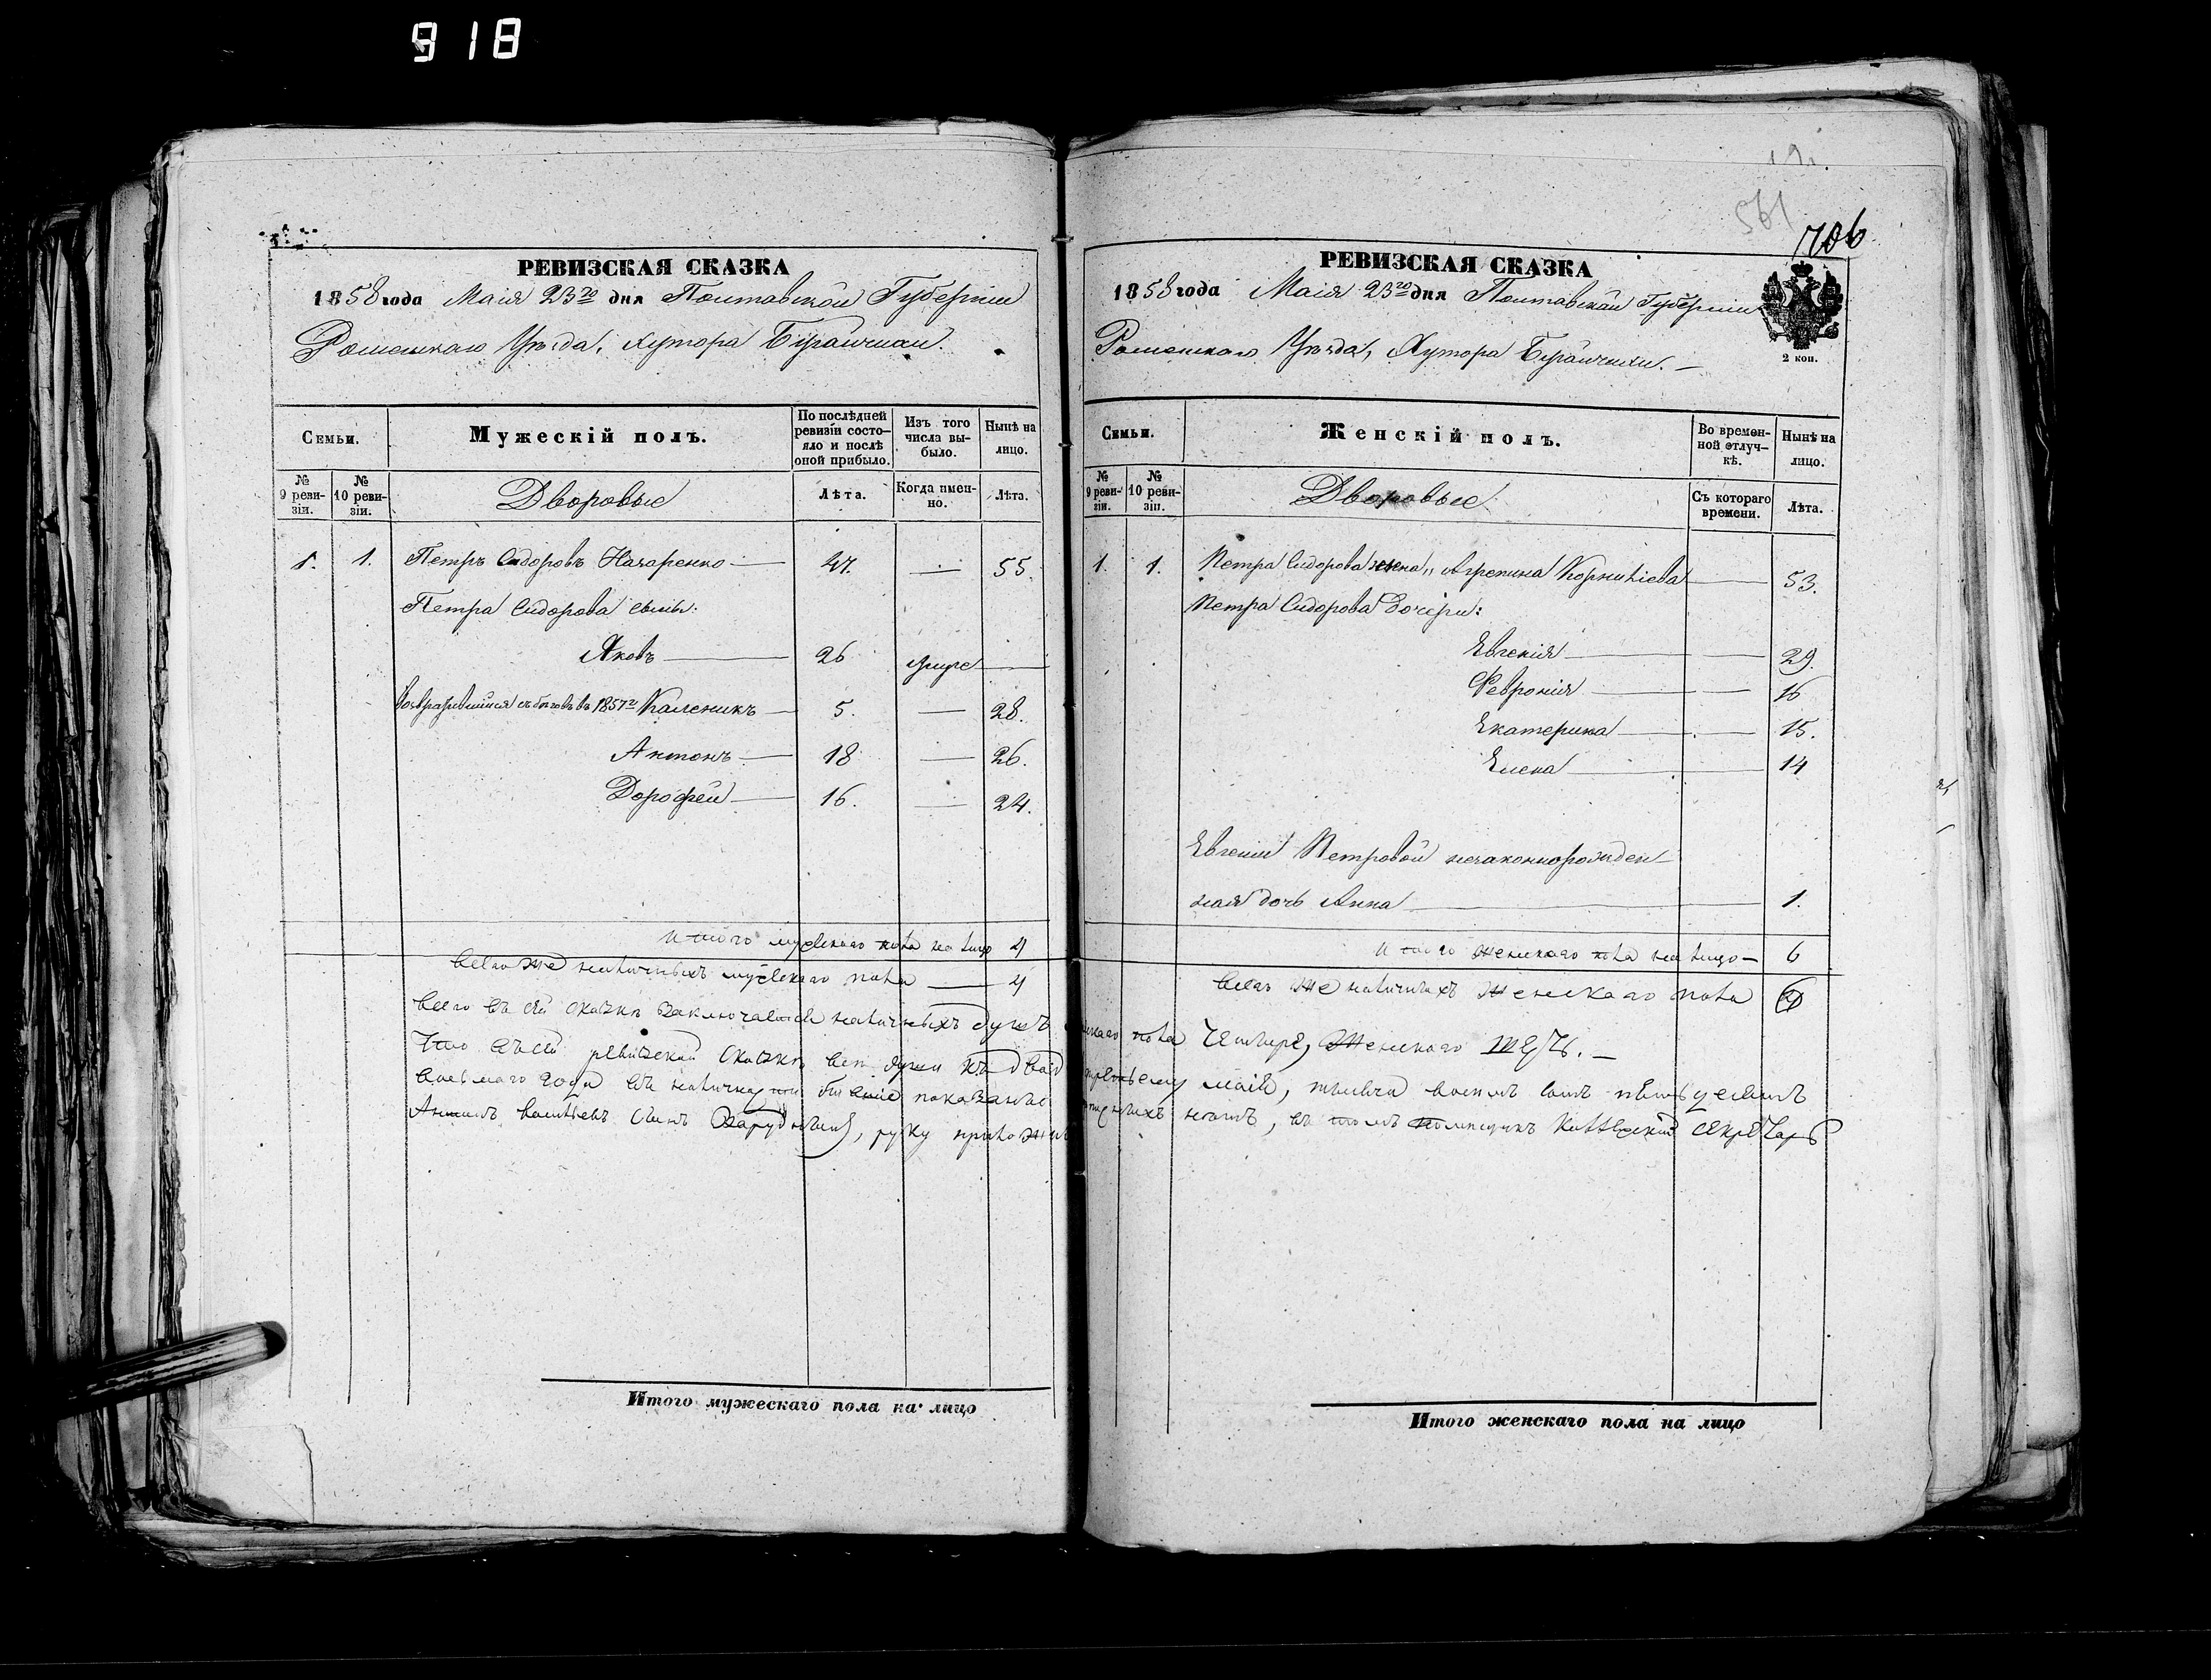 918
РЕВИЗСКАЯ СКАЗКА
1858 года Маія 23го дня Полтавской Губерніи
Роменскаго Уѣзда, хутора
Семьи.
Мужескій полъ.
По послѣдней ревизіи состояло и послѣ оной прибыло.
Изъ того числа выбыло.
Нынѣ на лицо.
№ 9 ревизіи.
№ 10 ревизіи.
Дворовые
Лѣта.
Когда именно.
Лѣта.
1. 1. Петръ Сидоровъ Назаренко — 47. — 55.
Петра Сидорова сыны:
Яковъ — 26 —
Возвратившійся съ бѣговъ въ 1857 г. Каленикъ — 5. — 28.
Антонъ — 18 — 26.
Дорофей — 16. — 24.
Итого мужескаго пола на лицо 4
Всего же наличныхъ мужескаго пола — 4
Всего въ сей сказкѣ заключается наличныхъ душъ
Что въ сей ревизской сказкѣ всѣ души къ двад
восьмаго года въ наличн показаны
Антонъ сынъ руку прилож
Итого мужескаго пола на лицо
19
561
706
РЕВИЗСКАЯ СКАЗКА
1858 года Маія 23го дня Полтавской Губерніи
Роменскаго Уѣзда, Хутора
2 коп.
Семьи.
Женскій полъ.
Во временной отлучкѣ.
Нынѣ на лицо.
№ 9 ревизіи.
№ 10 ревизіи.
Дворовые
Съ котораго времени.
Лѣта.
1. 1. Петра Сидорова жена Агрепина Корниліева — 53.
Петра Сидорова дочери:
Евгенія — 29.
Февронія — 16
Екатерина — 15.
Елена — 14
Евгеніи Петровой незаконнорожден
ная дочь Анна — 1.
Итого женскаго пола на лицо — 6
Всего же наличныхъ женскаго пола 6
скаго пола четыре, женскаго шесть. —
третьему маія, тысяча восемъ сотъ пятьдесятъ
нѣтъ, въ томъ помѣщикъ Коллежскій Секретарь
Итого женскаго пола на лицо